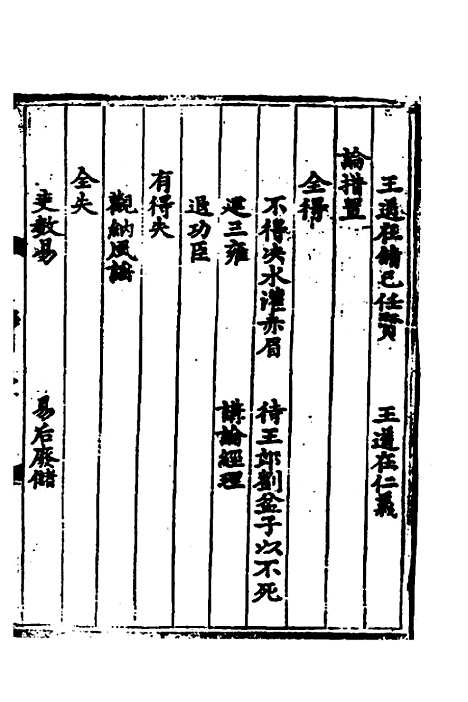 王道在脩己任賢　王道在仁義
論措置
全得
不得决水灌赤眉　待王郎劉盆子以不死
建三雍　講論經理
退功臣
有得失
觀納風謠
全失
吏數易　易后廢儲